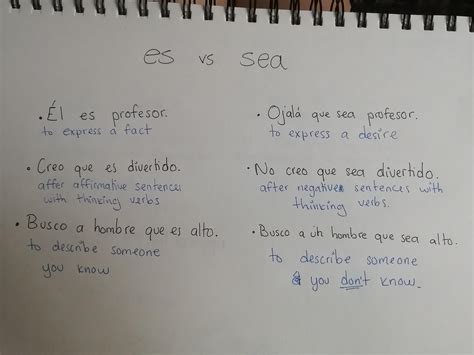 es vs sea
• Él es profesor.
to express a fact
• Creo que es divertido.
after affirmative sentences
with thinking verbs
• Busco a hombre que es alto.
to describe someone
you know
• Ojalá que sea profesor.
to express a desire
• No creo que sea divertido.
after negative sentences with
thinking verbs.
• Busco a un hombre que sea alto.
to describe someone
you don't know.